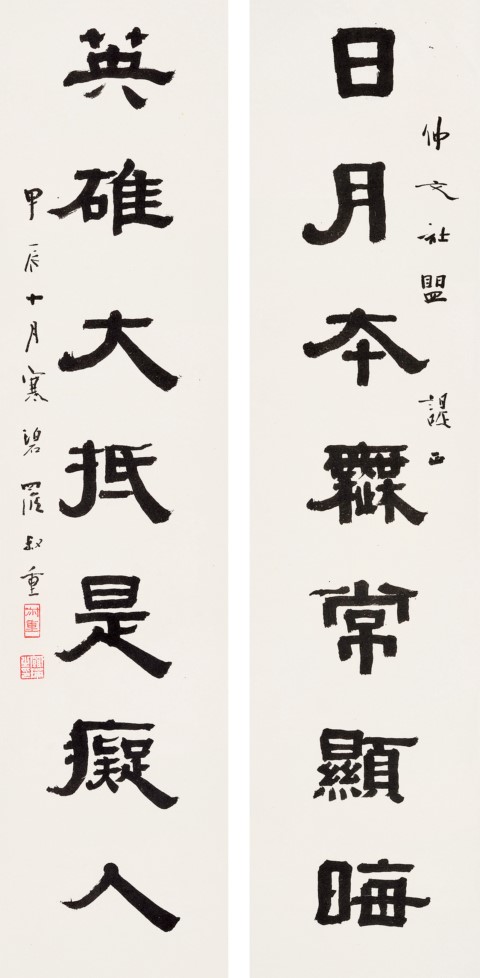 仲文社盟 諟正
日月本無常顯晦
英雄大抵是癡人
甲辰十月寒碧羅叔重
叔重